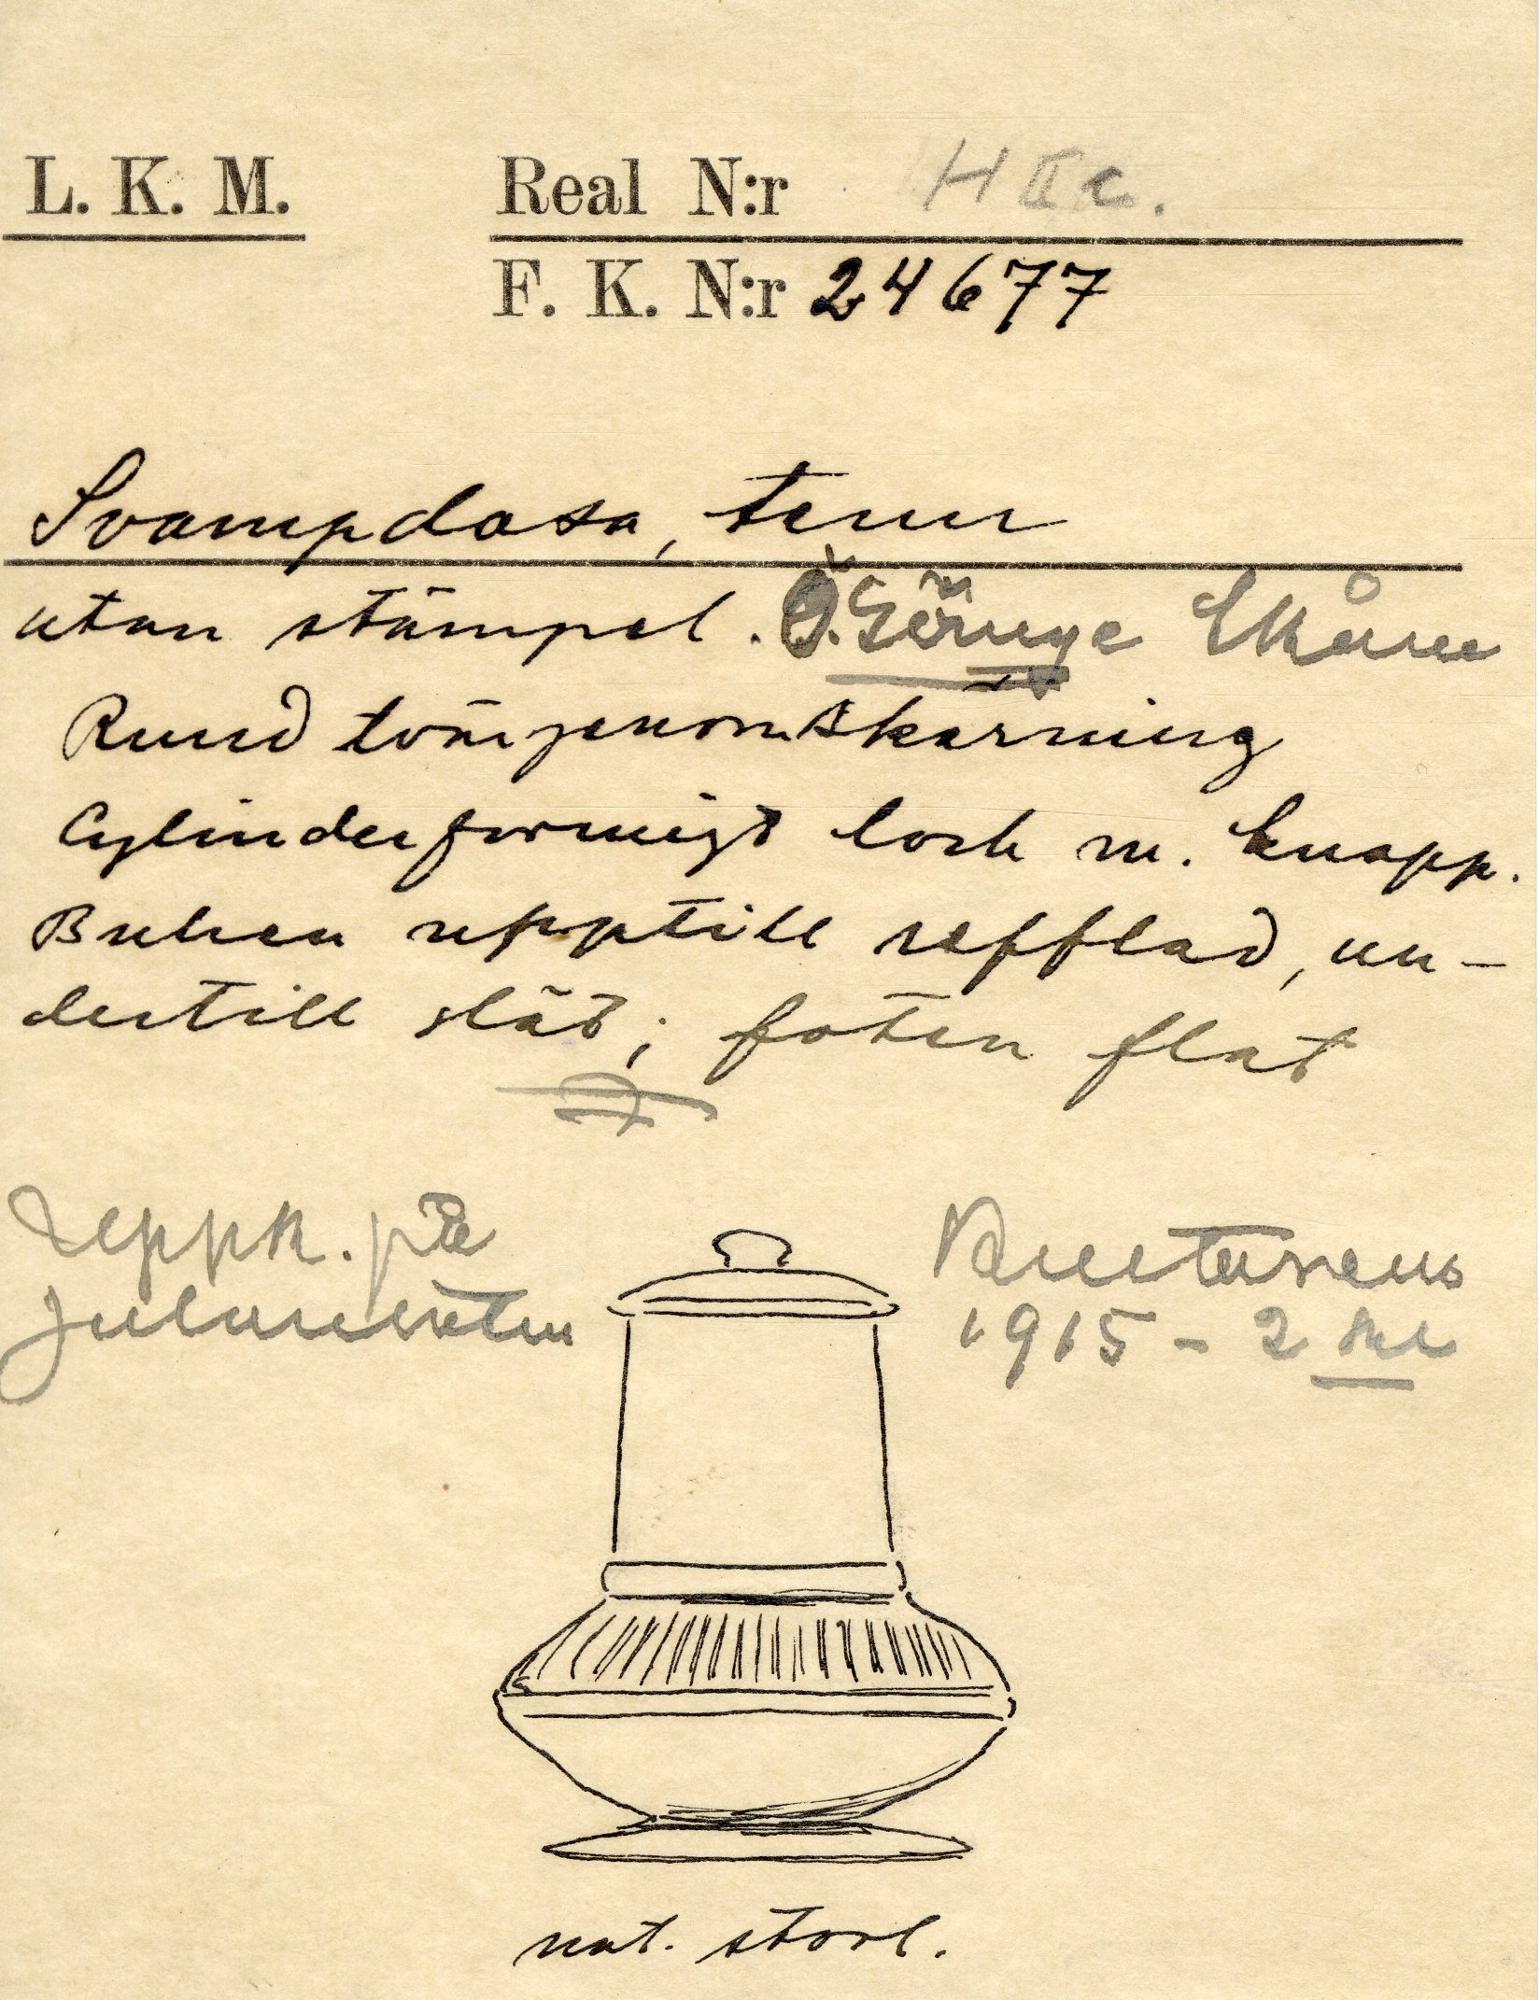 L. K. M.
Real N:r H II c.
F. K. N:r 24677
Svampdosa, tenn
utan stämpel. Ö. Göinge Skåne
Rund tvärgenomskärning
Cylinderformigt lock m. knapp.
Buken upptill refflad, un-
dertill slät; foten flat
Uppk. på
Julmarknaden
1915 - 2 kr
nat. storl.